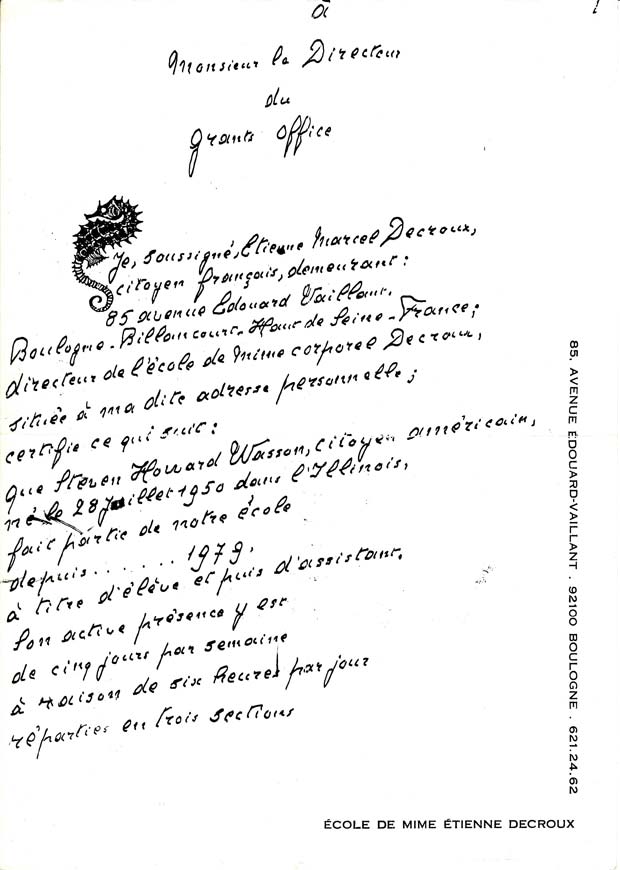 à
1
Monsieur le Directeur
du
Grants Office
Je, soussigné, Etienne Marcel Decroux,
citoyen français, demeurant :
85 avenue Edouard Vaillant.
Boulogne-Billancourt-Haut de Seine-France ;
directeur de l'école de mime corporel Decroux,
située à ma dite adresse personnelle ;
certifie ce qui suit :
que Steven Howard Wasson, citoyen américain,
né le 28 Juillet 1950 dans l'Illinois,
fait partie de notre école
depuis . . . . . . 1979.
à titre d'élève et puis d'assistant.
Son active présence y est
de cinq jours par semaine
à raison de six heures par jour
réparties en trois sections
85, AVENUE ÉDOUARD-VAILLANT . 92100 BOULOGNE . 621.24.62
ÉCOLE DE MIME ÉTIENNE DECROUX